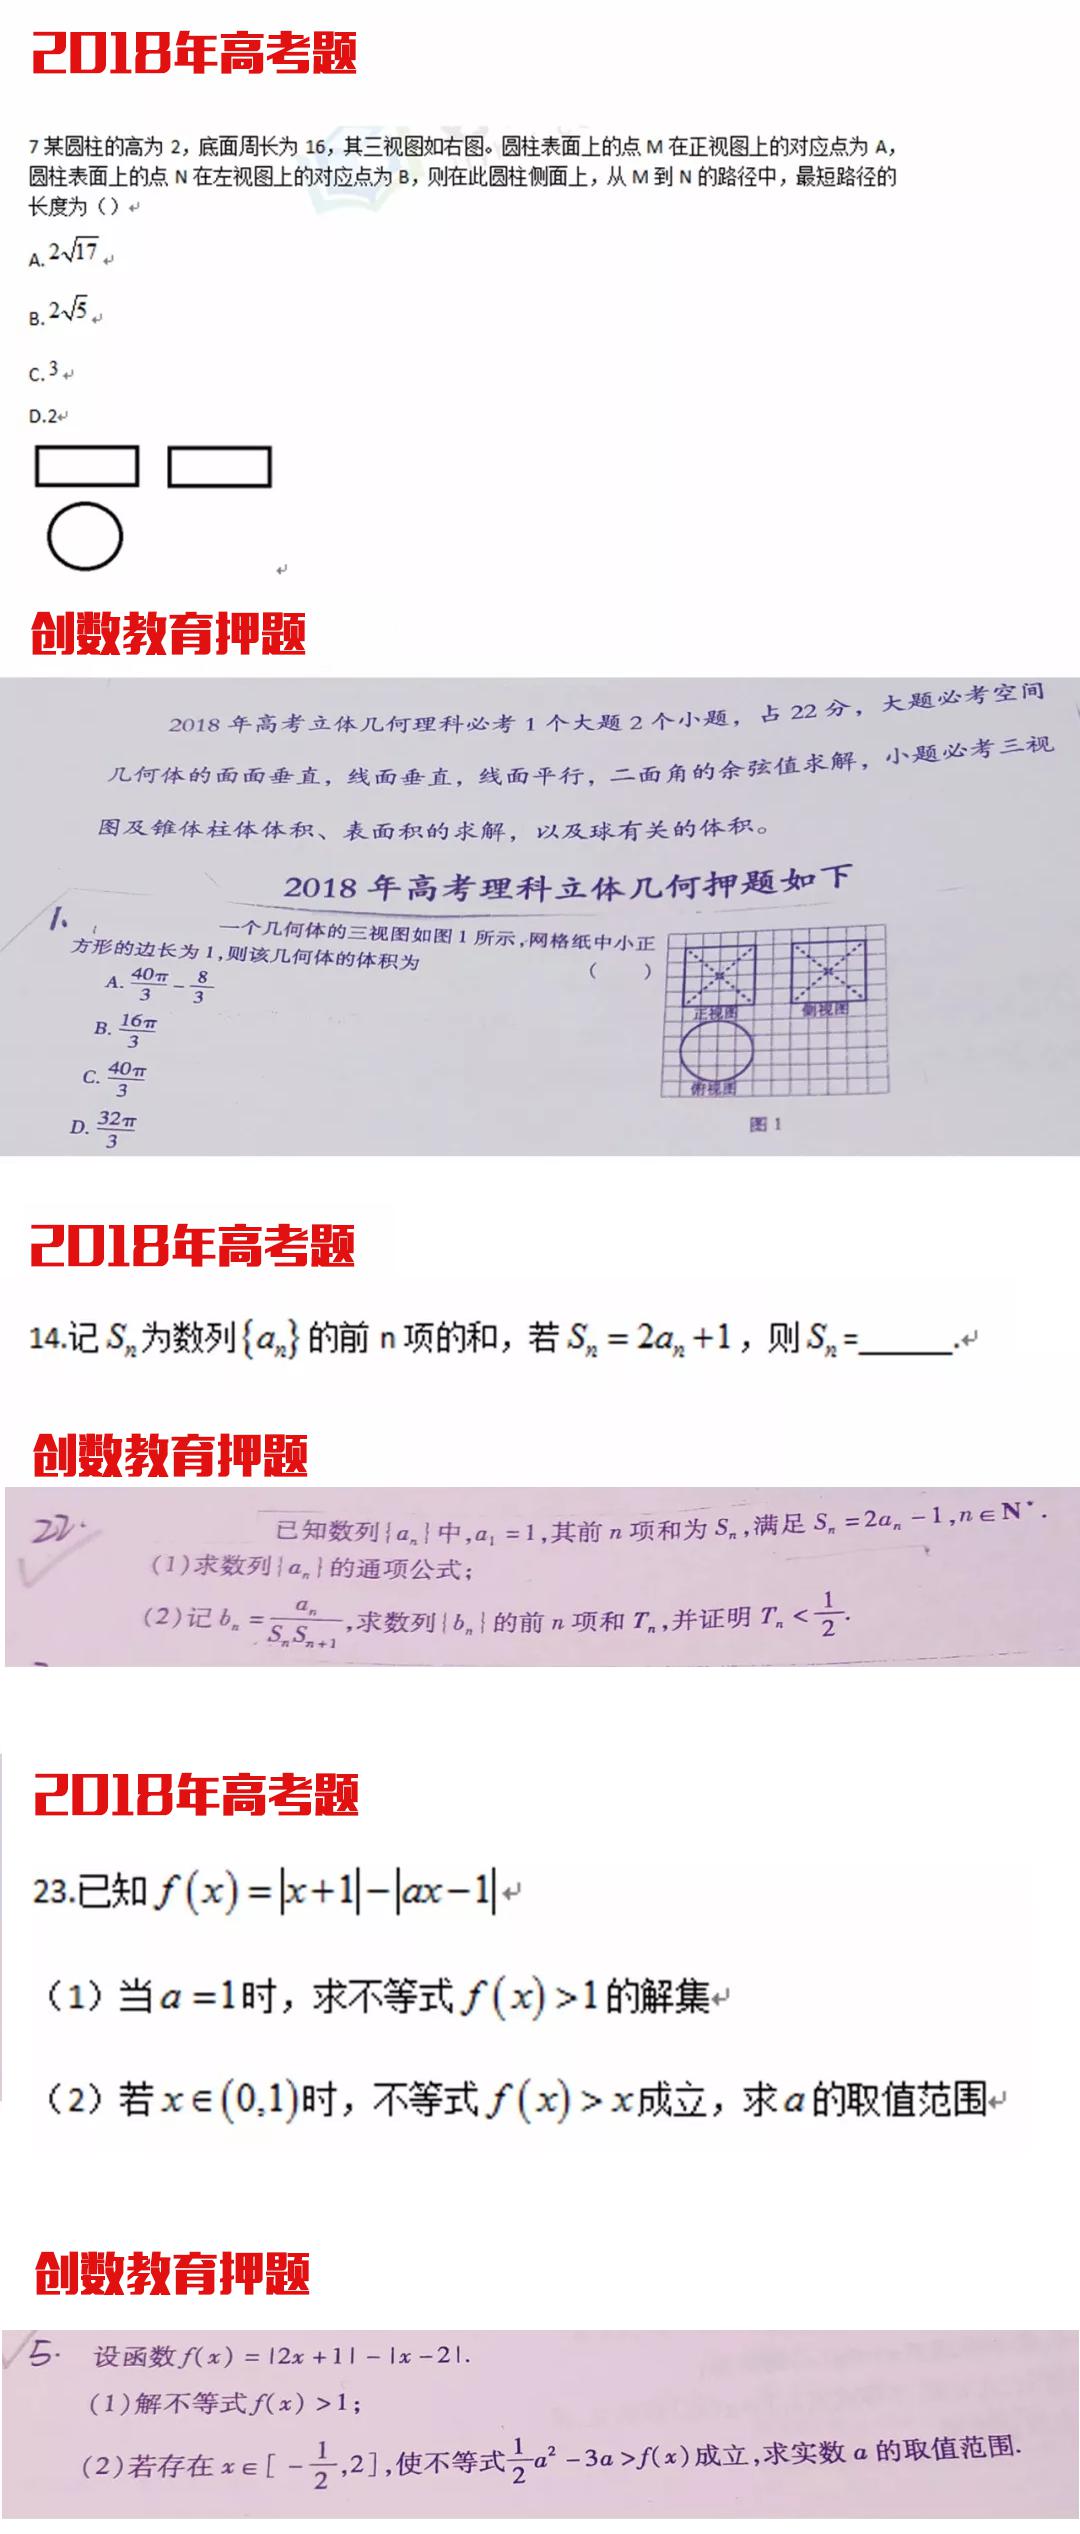 2018年高考题
7 某圆柱的高为 2，底面周长为 16，其三视图如右图。圆柱表面上的点 M 在正视图上的对应点为 A，
圆柱表面上的点 N 在左视图上的对应点为 B，则在此圆柱侧面上，从 M 到 N 的路径中，最短路径的
长度为（）
A. 2√17
B. 2√5
C. 3
D.2
创数教育押题
2018 年高考立体几何理科必考 1 个大题 2 个小题，占 22 分，大题必考空间
几何体的面面垂直，线面垂直，线面平行，二面角的余弦值求解，小题必考三视
图及锥体柱体体积、表面积的求解，以及球有关的体积。
2018 年高考理科立体几何押题如下
1、 一个几何体的三视图如图 1 所示,网格纸中小正
方形的边长为 1,则该几何体的体积为 （ ）
A. 40π/3 - 8/3
B. 16π/3
C. 40π/3
D. 32π/3
正视图 侧视图
俯视图
图 1
2018年高考题
14.记 Sₙ 为数列{aₙ} 的前 n 项的和，若 Sₙ = 2aₙ +1，则 Sₙ =______.
创数教育押题
22. 已知数列{aₙ}中,a₁ =1,其前 n 项和为 Sₙ,满足 Sₙ =2aₙ -1,n∈N*.
(1)求数列{aₙ}的通项公式;
(2)记 bₙ = aₙ/(SₙSₙ₊₁),求数列{bₙ}的前 n 项和 Tₙ,并证明 Tₙ < 1/2.
2018年高考题
23.已知 f(x)=|x+1|-|ax-1|
（1）当 a =1时，求不等式 f(x)>1的解集
（2）若 x∈(0,1)时，不等式 f(x)>x成立，求 a 的取值范围
创数教育押题
5. 设函数 f(x) = |2x +1| - |x -2|.
(1)解不等式 f(x) >1;
(2)若存在 x∈[ -1/2,2],使不等式 1/2 a² -3a >f(x)成立,求实数 a 的取值范围.